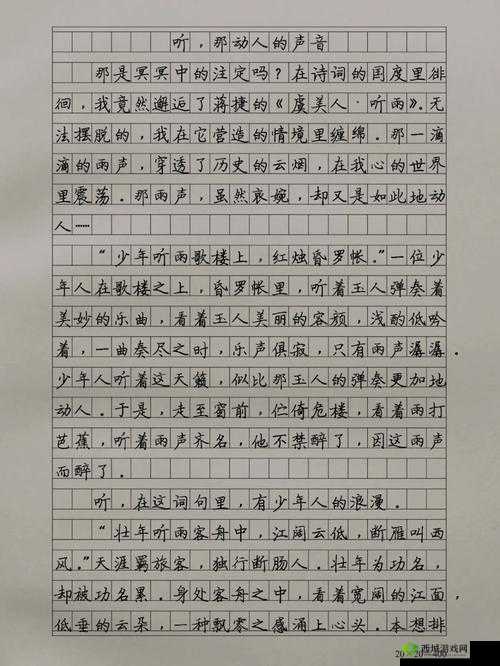 听，那动人的声音
那是冥冥中的注定吗？在诗词的国度里徘
徊，我竟然邂逅了蒋捷的《虞美人·听雨》。无
法摆脱的，我在它营造的情境里缠绵。那一滴
滴的雨声，穿透了历史的云烟，在我心的世界
里震荡。那雨声，虽然哀婉，却又是如此地动
人……
“少年听雨歌楼上，红烛昏罗帐。”一位少
年人在歌楼之上，昏罗帐里，听着玉人弹奏着
美妙的乐曲，看着玉人美丽的容颜，浅酌低吟
着，一曲奏尽之时，乐声俱寂，只有雨声潺潺。
少年人听着这天籁，似比那玉人的弹奏更加地
动人。于是，走至窗前，伫倚危楼，看着雨打
芭蕉，听着雨声齐名，他不禁醉了，因这雨声
而醉了。
听，在这词句里，有少年人的浪漫。
“壮年听雨客舟中，江阔云低，断雁叫西
风。”天涯羁旅客，独行断肠人。壮年为功名，
却被功名累。身处客舟之中，看着宽阔的江面，
低垂的云朵，一种飘零之感涌上心头。本想排
20×20=400
西城游戏网